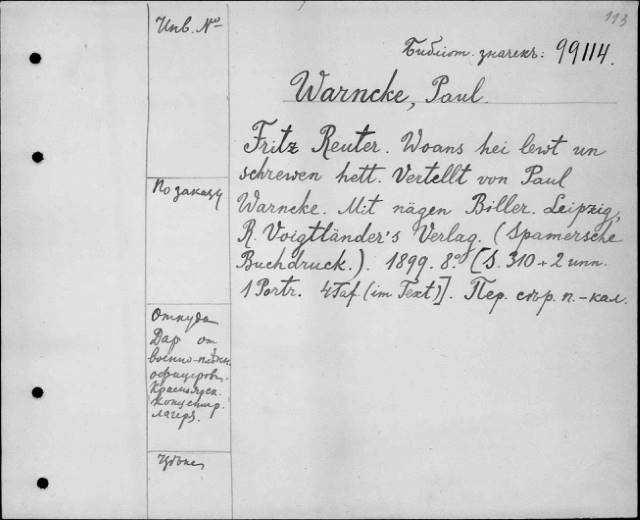 113
Инв. №
Библіот. значекъ: 99114.
Warncke, Paul.
Fritz Reuter. Woans hei lewt un
schrewen hett. Vertellt von Paul
Warncke. Mit nägen Biller. Leipzig,
R. Voigtländer's Verlag. (Spamersche
Buchdruck.). 1899. 8.° [S. 310 + 2 unn.
1 Portr. 4 Taf (im Text)]. Пер. сѣр. п.-кал.
По заказу
Откуда
Дар от
военно-плѣнн.
офицеровъ.
Красноярск.
Концентр.
лагеря.
Цѣна